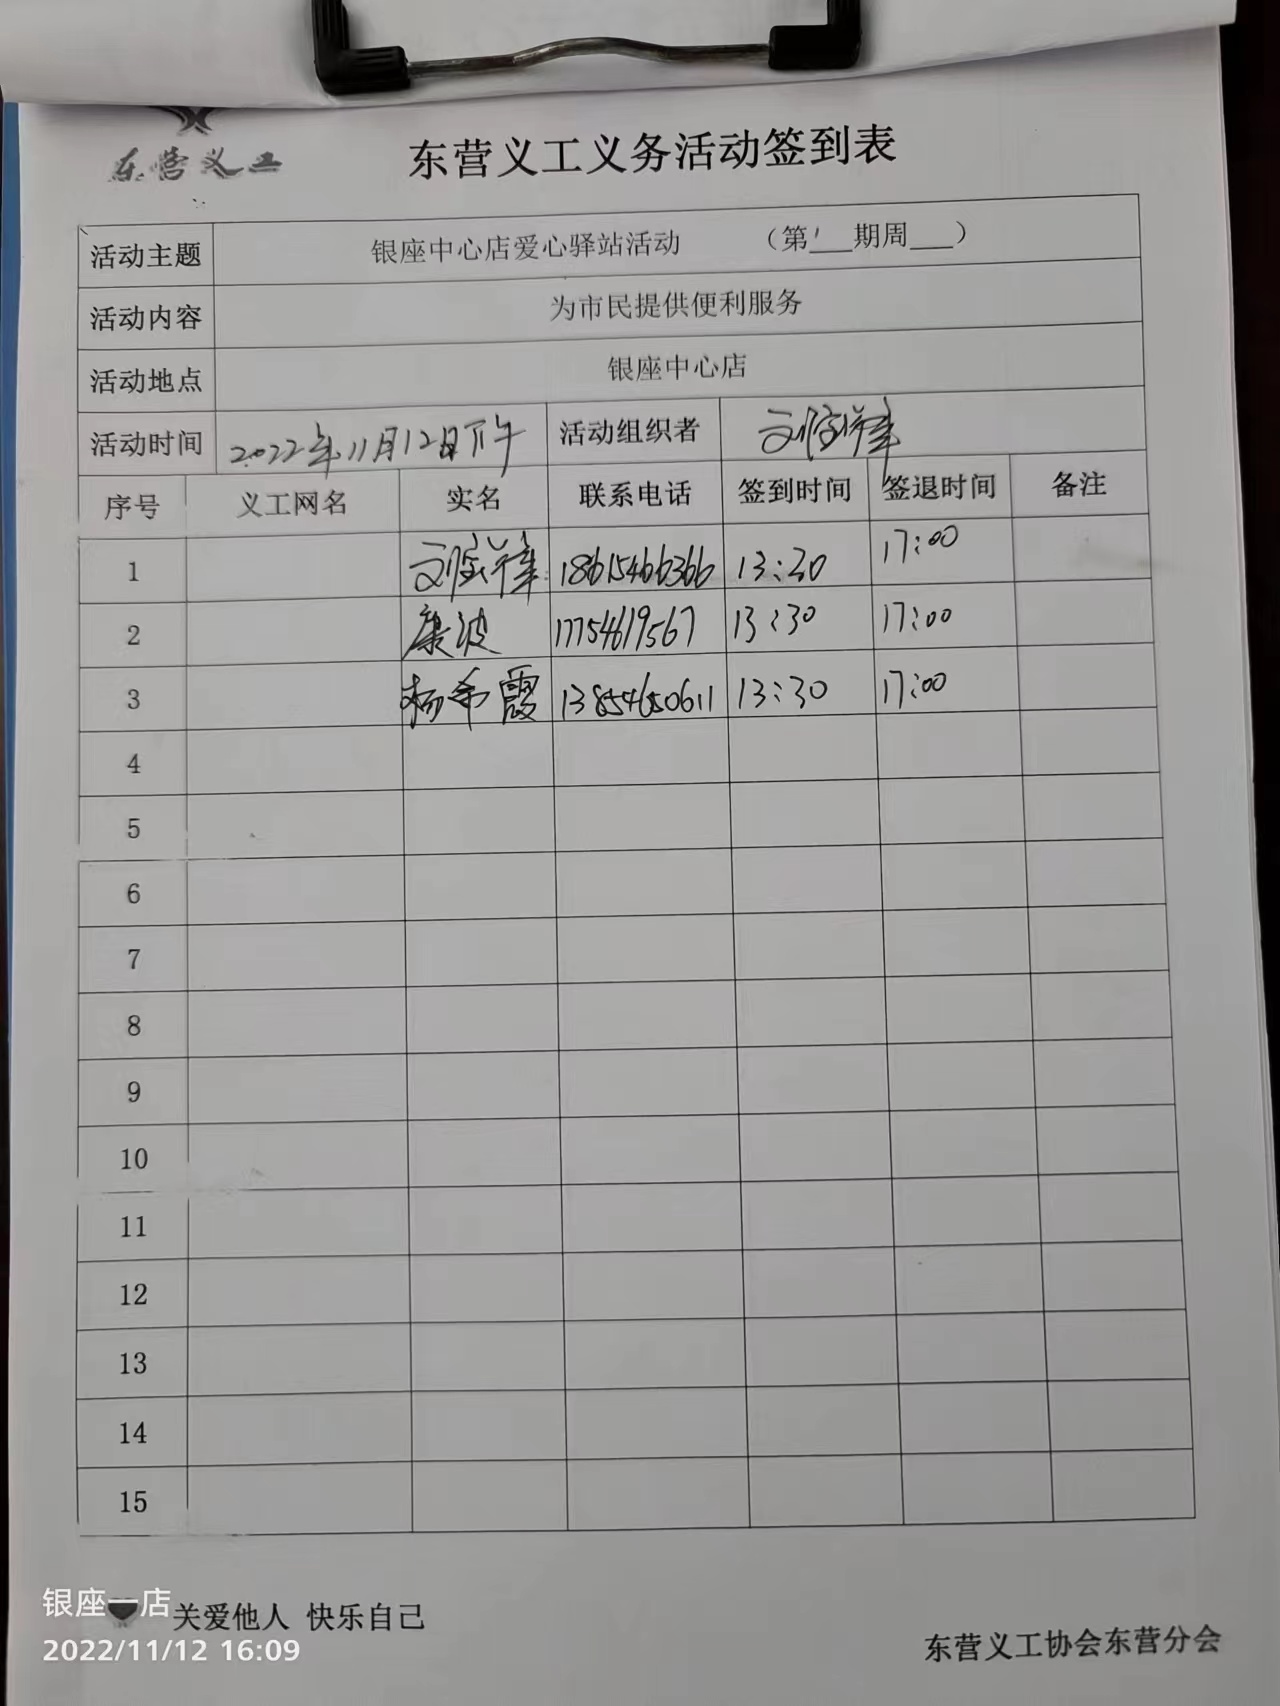 东营义工
东营义工义务活动签到表
活动主题 银座中心店爱心驿站活动 （第 期周 ）
活动内容 为市民提供便利服务
活动地点 银座中心店
活动时间 2022年11月12日下午 活动组织者 刘宝峰
序号 义工网名 实名 联系电话 签到时间 签退时间 备注
1 18615466366 13:30 17:00
2 康波 17754619567 13:30 17:00
3 杨希霞 13854650611 13:30 17:00
4
5
6
7
8
9
10
11
12
13
14
15
银座一店
关爱他人 快乐自己
2022/11/12 16:09
东营义工协会东营分会